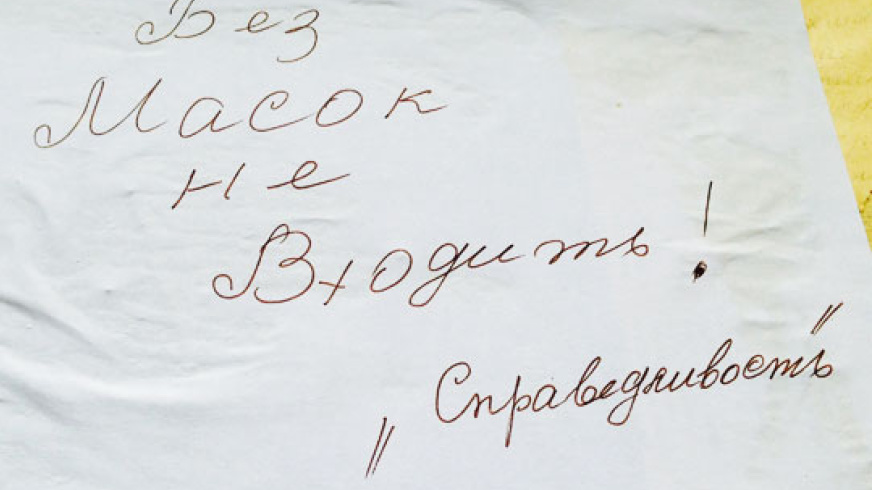 Без
Масок
не
Входить!
„Справедливость"